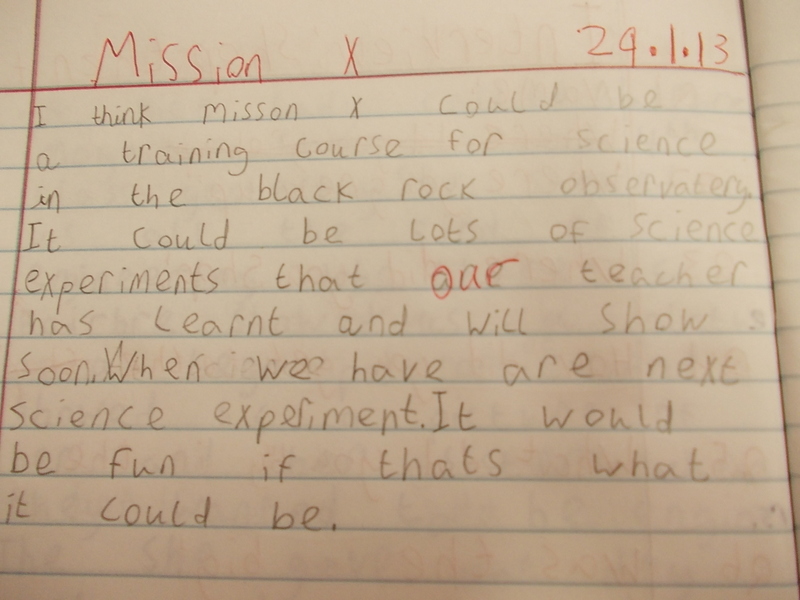 Mission X 29.1.13
I think misson X could be
a training course for science
in the black rock observatery
It could be lots of science
experiments that our teacher
has learnt and will show
soon. When we have are next
science experiment. It would
be fun if thats what
it could be.